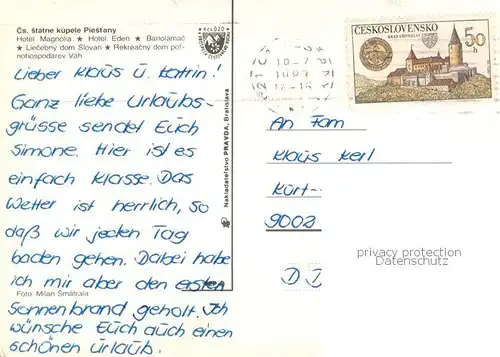 Čs. štátne kúpele Piešťany
Hotel Magnólia ★ Hotel Eden ★ Bariolámač
★ Liečebný dom Slovan ★ Rekreačný dom poľ-
nohospodárov Váh
Lieber Klaus u. Katrin!
Ganz liebe Urlaubs-
grüsse sendet Euch
Simone. Hier ist es
einfach klasse. Das
Wetter ist herrlich, so
daß wir jeden Tag
baden gehen. Dabei habe
ich mir aber den ersten
Foto Milan Šmátrala
Sonnenbrand geholt. Ich
wünsche Euch auch einen
schönen Urlaub.
Nakladateľstvo PRAVDA, Bratislava
ČESKOSLOVENSKO
50 h
An Fam
Klaus Keil
Kurt-
9002
privacy protection
Datenschutz